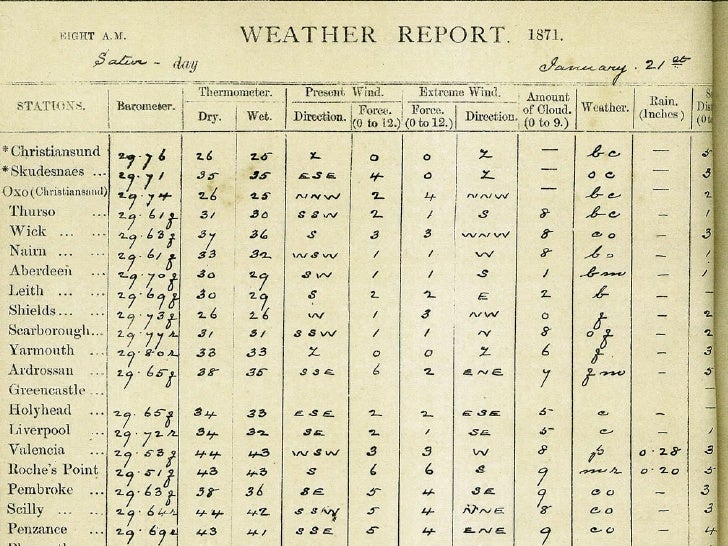 EIGHT A.M. WEATHER REPORT. 1871.
Satur-day January. 21st
STATIONS. Barometer. Thermometer. Present Wind. Extreme Wind. Amount of Cloud. (0 to 9.) Weather. Rain. (Inches)
Dry. Wet. Direction. Force. (0 to 12.) Force. (0 to 12.) Direction.
*Christiansund 29.76 26 25 Z 0 0 Z — bc —
*Skudesnaes ... 29.71 35 35 ESE 4 0 Z — oc — 3
Oxo (Christiansand) 29.74 26 25 NNW 2 4 NNW — bc — 2
Thurso ... 29.61f 31 30 SSW 2 1 S 8 bc — 1
Wick ... ... 29.63f 37 36 S 3 3 WNW 8 co — 3
Nairn ... ... 29.61f 33 32 WSW 1 1 W 8 bo —
Aberdeen ... 29.70f 30 29 SW 1 1 S 1 bm —
Leith ... ... 29.69f 30 29 S 2 2 E 2 b —
Shields... ... 29.73f 26 26 W 1 3 NW 0 f — 2
Scarborough... 29.77r 31 31 SSW 1 1 N 8 of — 2
Yarmouth ... 29.80r 33 33 Z 0 0 Z 6 f — 3
Ardrossan ... 29.65f 38 35 SSE 6 2 ENE 7 fm — 5
Greencastle ...
Holyhead ... 29.65f 34 33 ESE 2 2 ESE 5 c —
Liverpool ... 29.72r 34 32 SE 2 1 SE 5 c — 1
Valencia ... 29.53f 44 43 WSW 3 3 W 8 p 0.28 3
Roche's Point 29.51f 43 43 S 6 6 S 9 mr 0.20 5
Pembroke ... 29.63f 38 36 SE 5 4 SE 9 co — 3
Scilly ... ... 29.64r 44 42 SSW 5 4 NNE 8 co — 3
Penzance ... 29.69r 43 41 SSE 5 4 ENE 9 co — 4